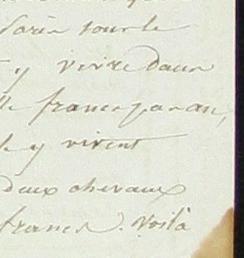 Paris tour le
y vivre dans
francs par an,
y vivent
deux chevaux
francs. Voilà